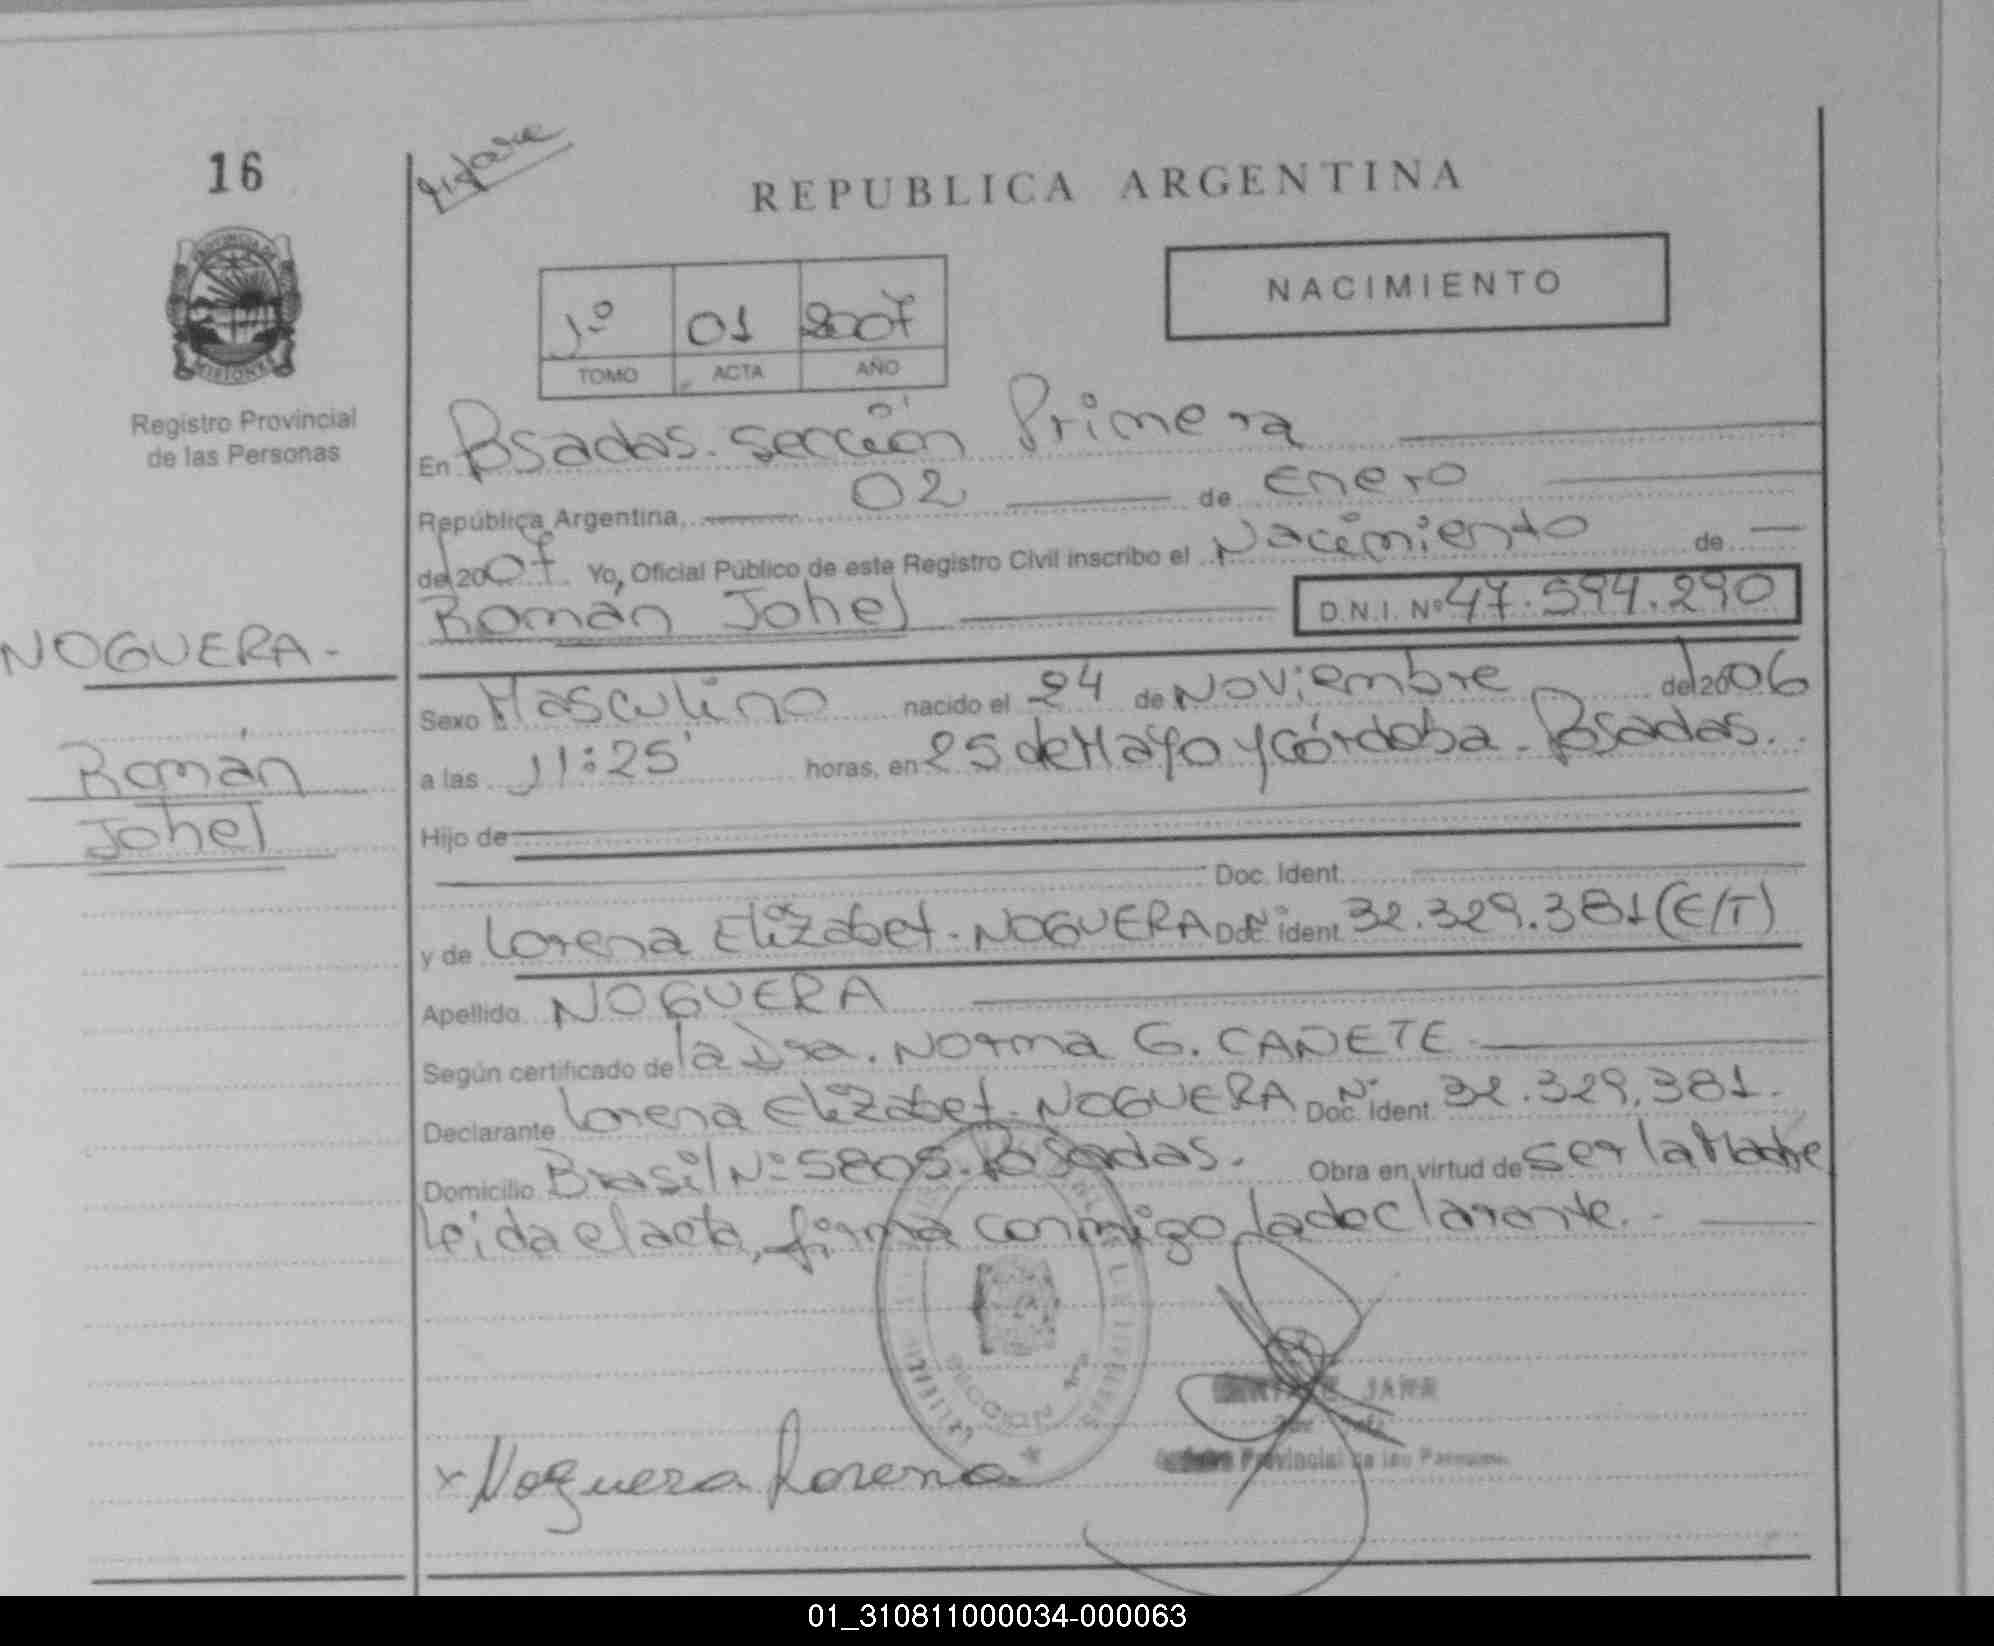 16
REPUBLICA ARGENTINA
NACIMIENTO
1º 01 2007
TOMO ACTA AÑO
Registro Provincial
de las Personas
En Posadas. sección Primera
República Argentina, 02 de Enero
de 2007 Yo, Oficial Público de este Registro Civil inscribo el Nacimiento de
Román Johel D.N.I. Nº 47.594.290
NOGUERA-
Román
Johel
Sexo Masculino nacido el 24 de Noviembre de 2006
a las 11:25' horas, en 25 de Mayo y Córdoba - Posadas.
Hijo de
Doc. Ident.
y de Lorena Elizabet - NOGUERA Doc. Ident. Nº 32.329.381 (E/T)
Apellido NOGUERA
Según certificado de la Dra. Norma G. CAÑETE
Declarante Lorena Elizabet - NOGUERA Doc. Ident. Nº 32.329.381.
Domicilio Brasil Nº 5805. Posadas. Obra en virtud de ser la Madre
leida el acta, firma conmigo la declarante.-
x Noguera Lorena
Provincial de las Personas
01_310811000034-000063